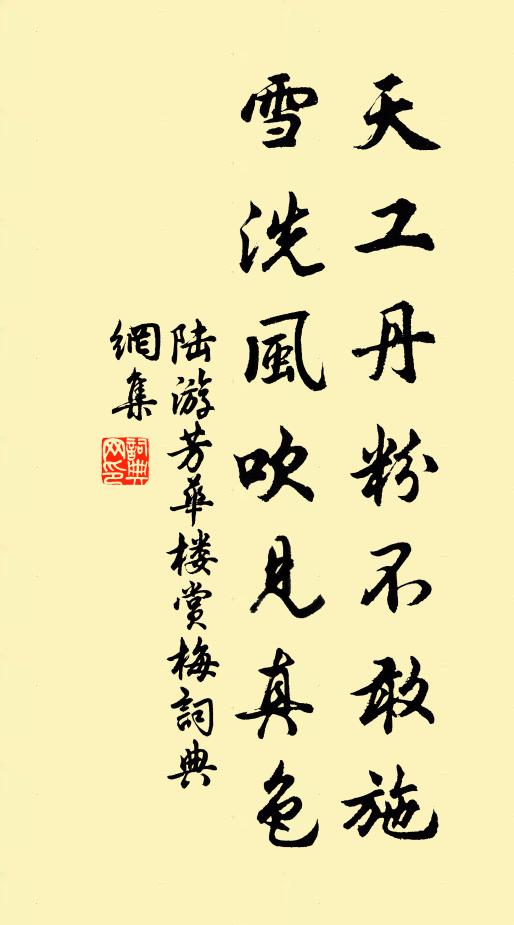 天工丹粉不敢施
雪洗風吹見真色
陆游芳華楼賞梅詞典
網集
詞典
网印